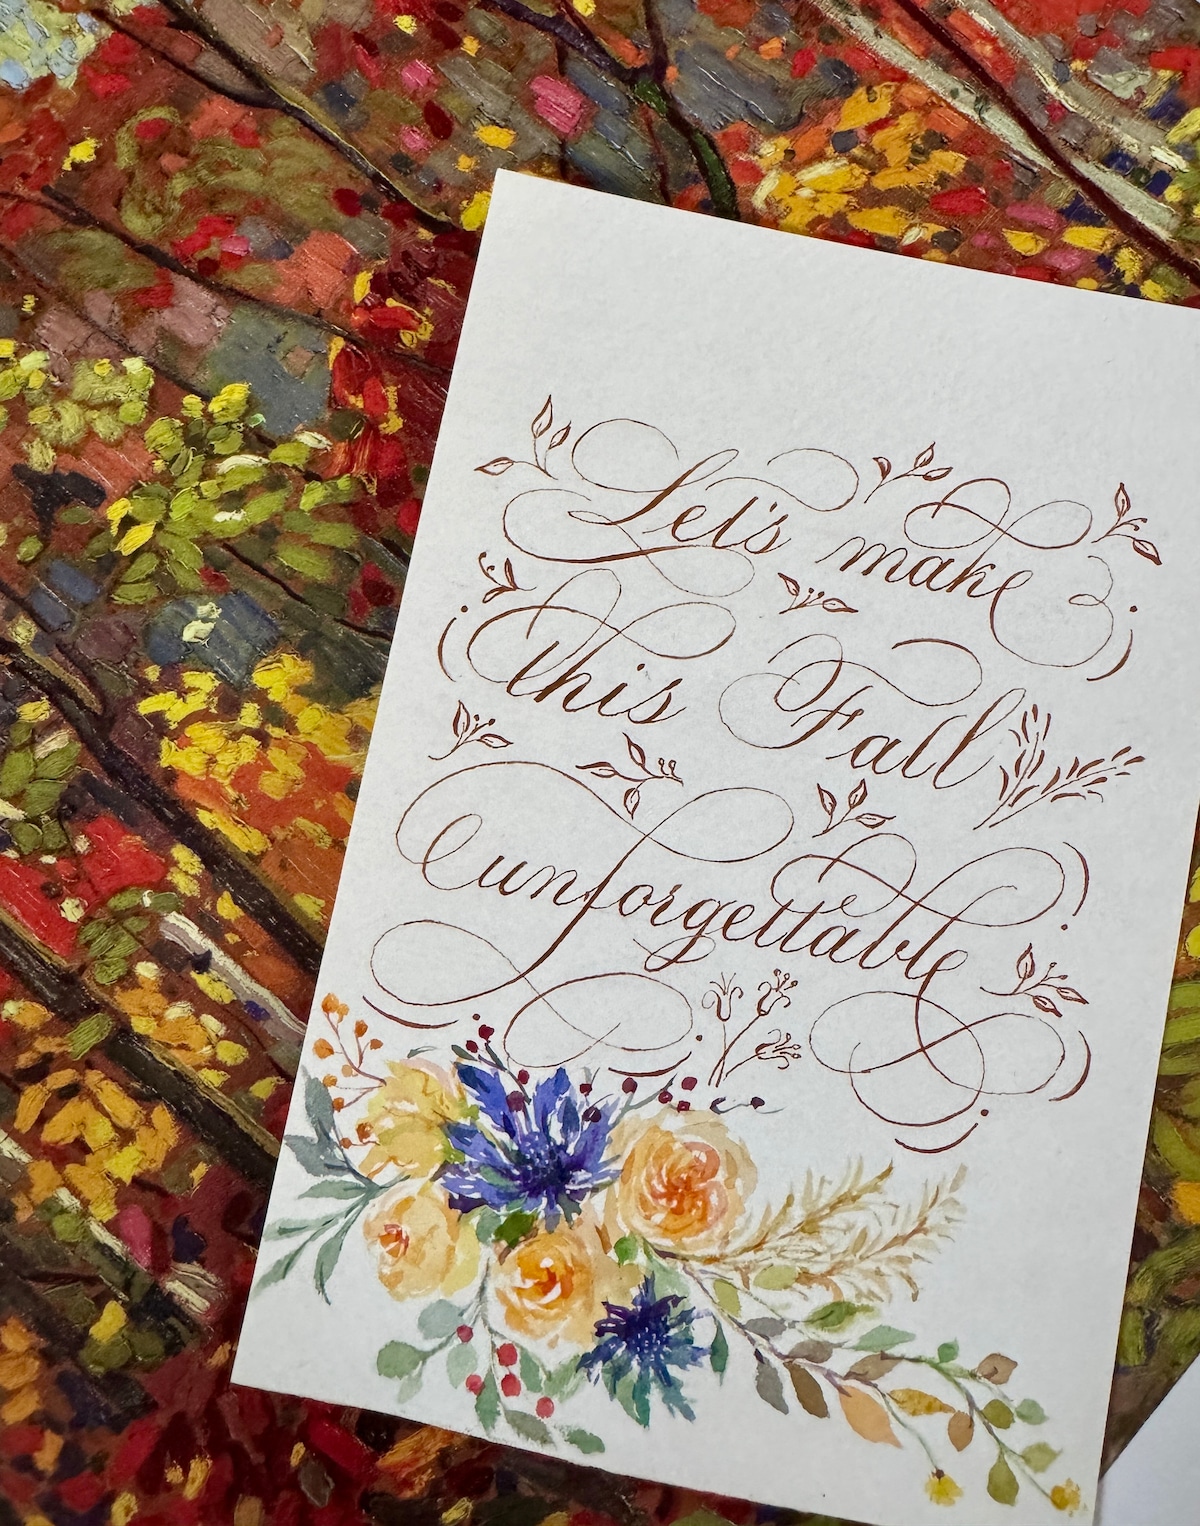 Let's make
this Fall
unforgettable